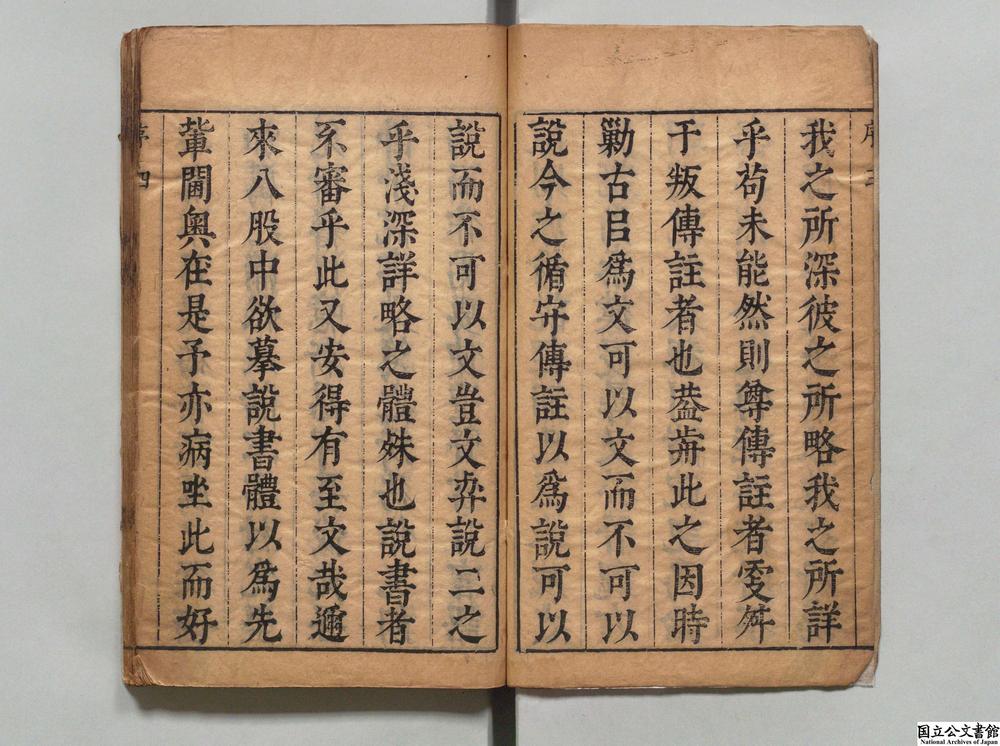 序三
我之所深彼之所略我之所詳
乎苟未能然則尊傳註者舛
于叛傳註者也葢歬此之因時
勦古㠯爲文可以文而不可以
說今之循守傳註以爲說可以
說而不可以文豈文弈說二之
乎淺深詳略之體殊也說書者
不審乎此又安得有至文哉邇
來八股中欲摹說書體以爲先
輩閫奧在是予亦病坐此而好
序四
国立公文書館
National Archives of Japan